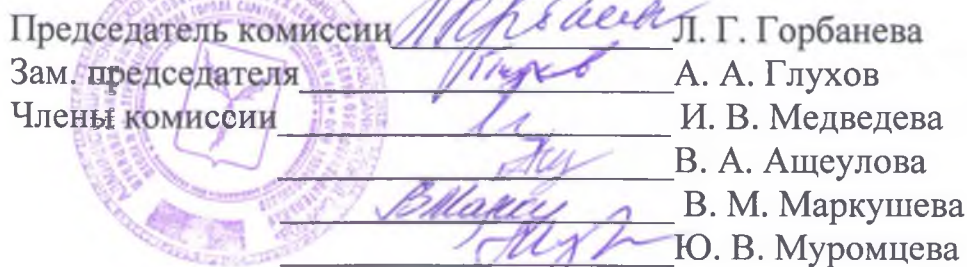 Председатель комиссии Л. Г. Горбанева
Зам. председателя А. А. Глухов
Члены комиссии И. В. Медведева
В. А. Ащеулова
В. М. Маркушева
Ю. В. Муромцева